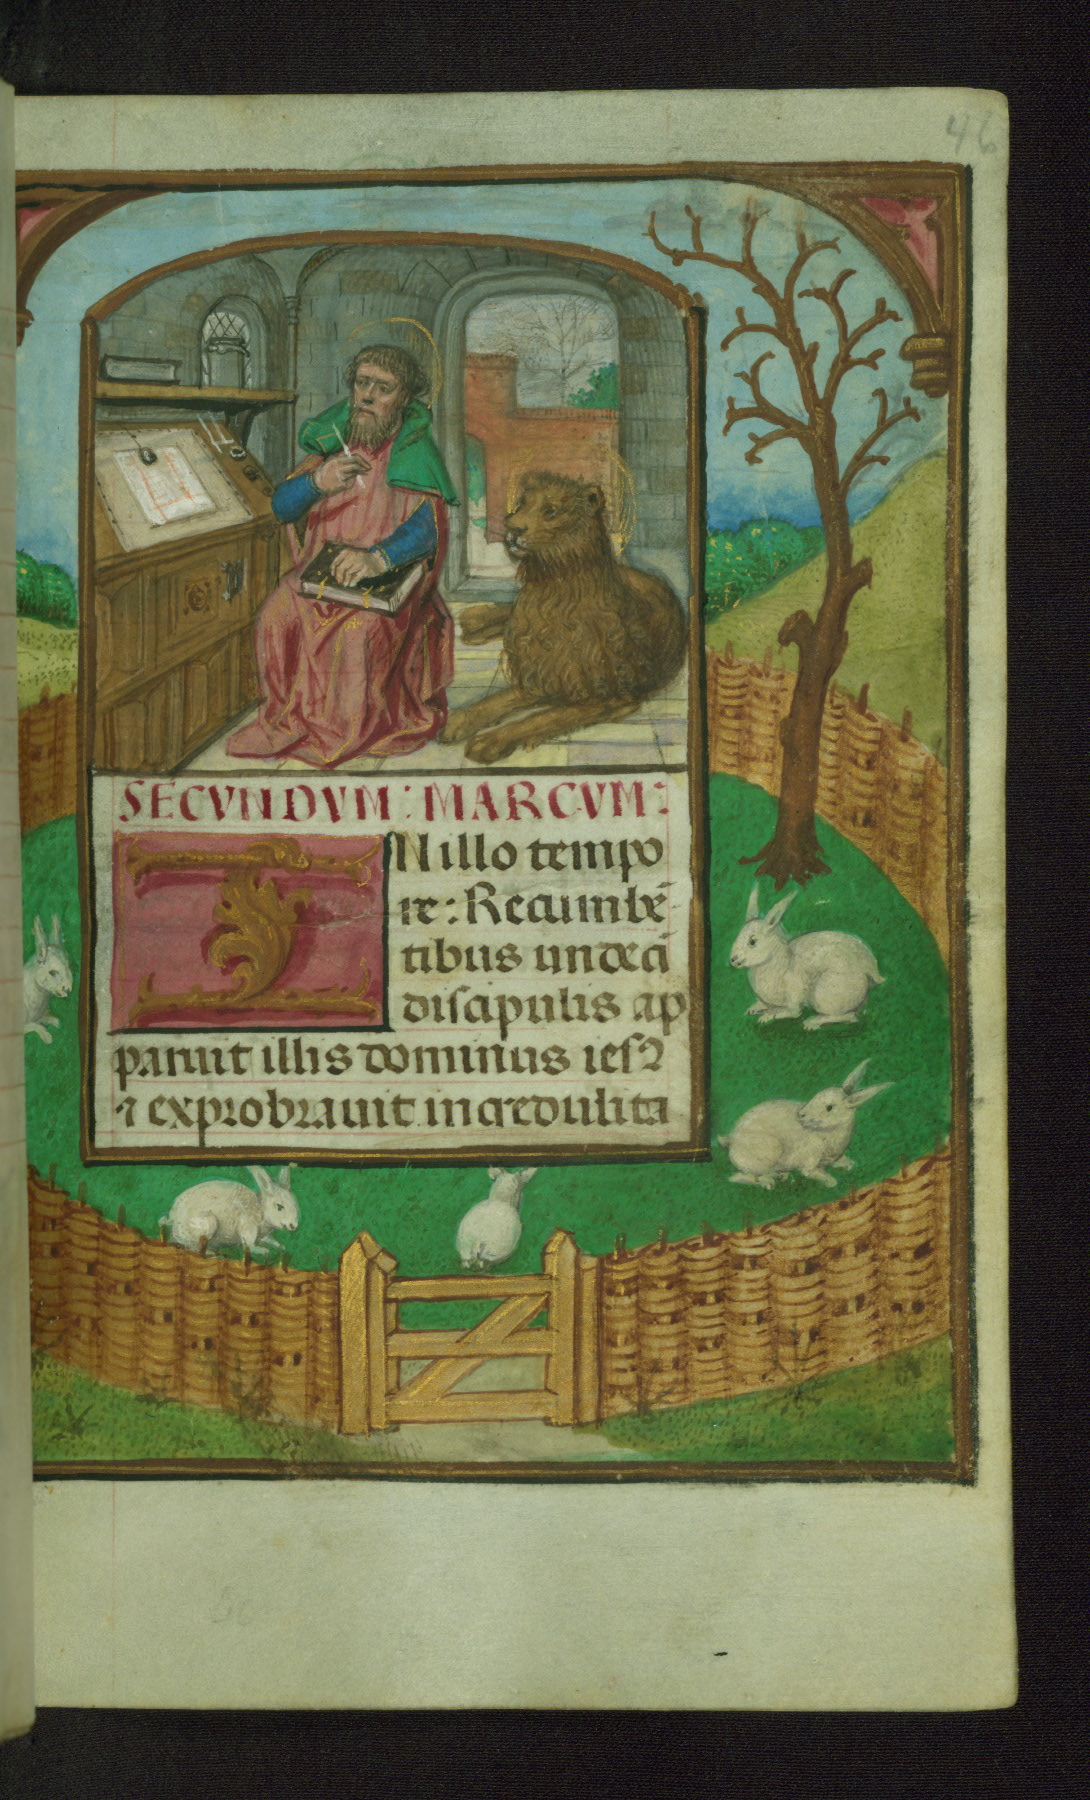 46
SECVNDVM : MARCVM :
IN illo tempo
re : Recumbē
tibus undecī
discipulis ap
paruit illis dominus iesꝰ
⁊ exprobrauit incredulita